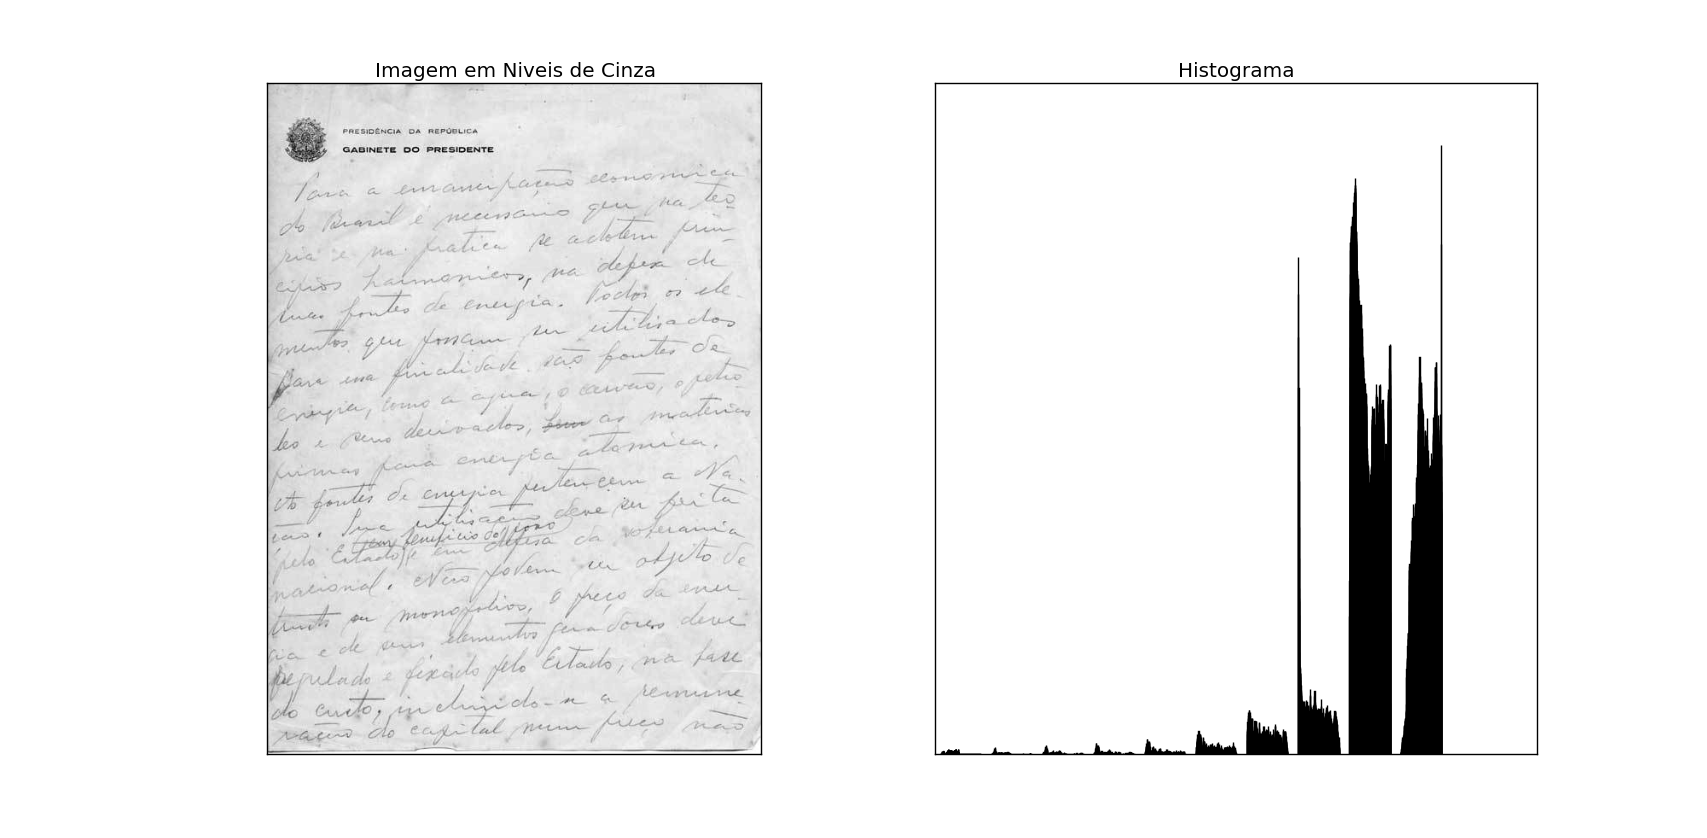 Imagem em Niveis de Cinza
Histograma
PRESIDÊNCIA DA REPÚBLICA
GABINETE DO PRESIDENTE
Para a emancipação economica
do Brasil é necessario que na teo-
ria e na pratica se adotem prin-
cipios harmonicos, na defesa de
suas fontes de energia. Todos os ele-
mentos que possam ser utilisados
para essa finalidade são fontes de
energia, como a agua, o carvão, o petro-
leo e seus derivados, as materias
primas para energia atomica.
As fontes de energia pertencem a Na-
ção. Sua utilisação deve ser feita
em beneficio do povo
pelo Estado e em defesa da soberania
nacional. Não podem ser objeto de
trusts ou monopolios, o preço da ener-
gia e de seus elementos geradores deve
regulado e fixado pelo Estado, na base
do custo, incluindo-se a remune
ração do capital num preço não